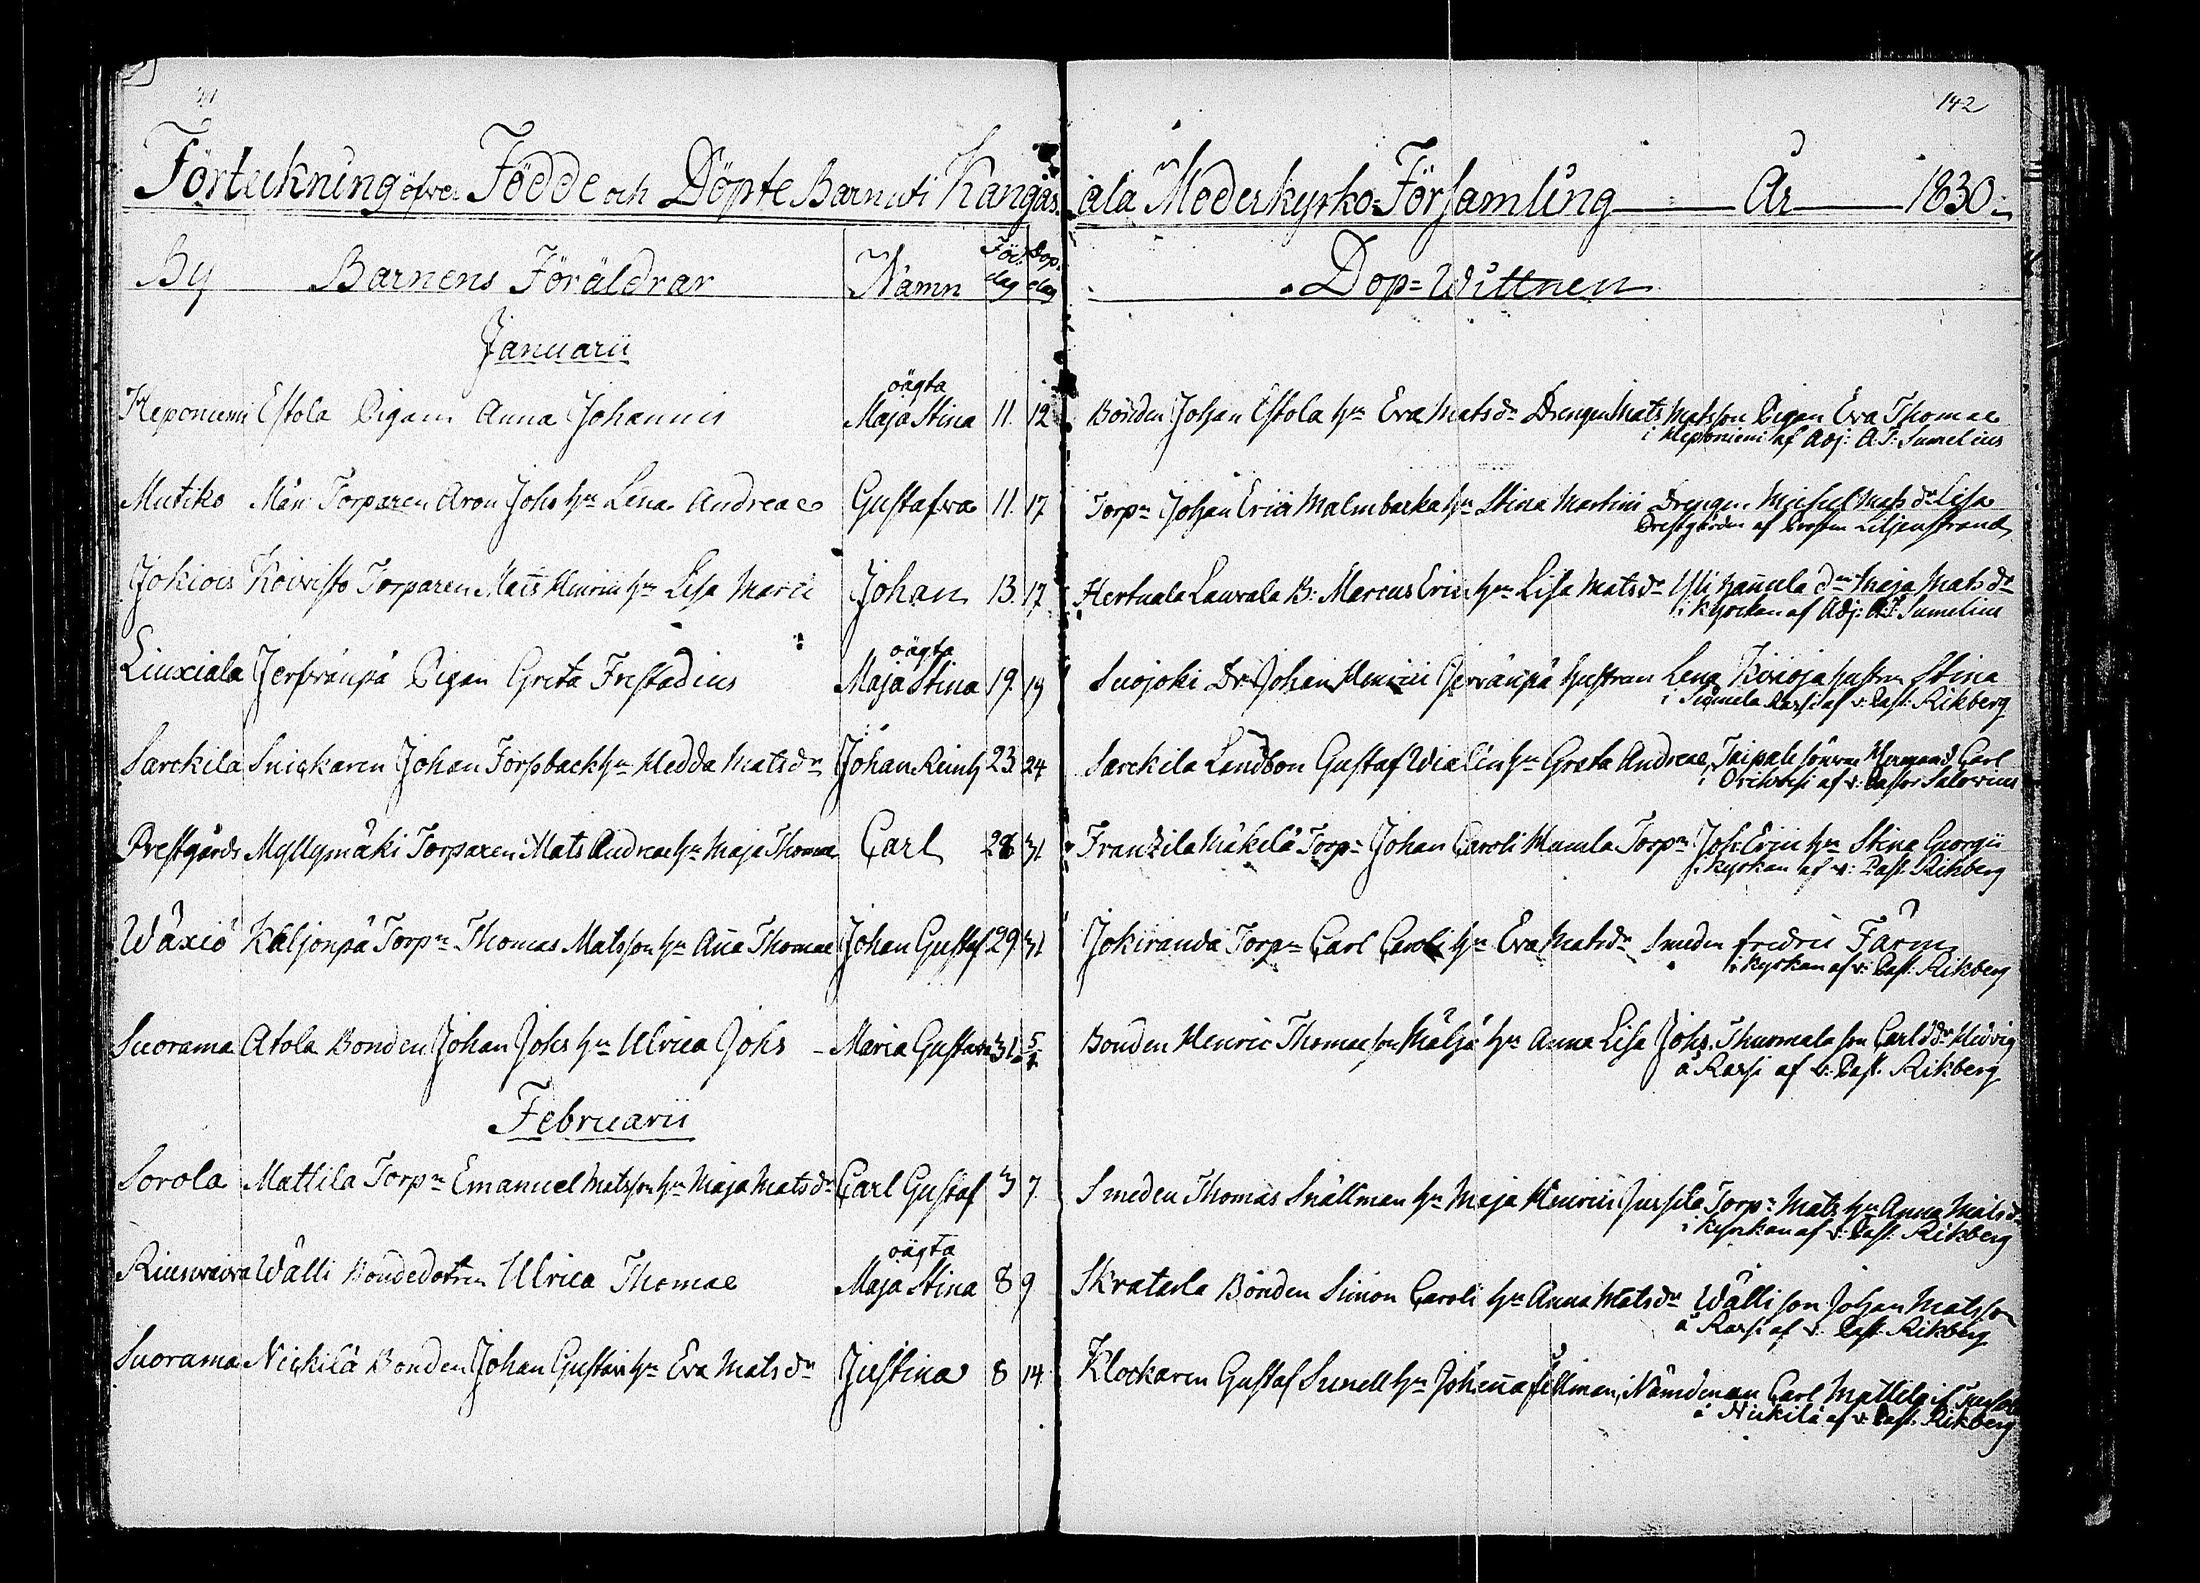 142
Förteckning öfver Födde och Döpte Barn uti Kangasala Moderkyrko-Församling År 1830
By Barnens Föräldrar Namn Föd. dag Dop. dag Dop-Wittnen
Januarii
Heponiemi Eskola Pigan Anna Johannis oägta Maja Stina 11. 12 Bonden Johan Eskola hu Eva Matsdr Drengen Mats Matsson Pigan Eva Thomae
i Heponiemi af Adj: A.J: Sumelius
Mutiko Torparen Aron Johs hu Lena Andreae Gustafva 11. 17 Torpn Johan Erici hu Stina Martini Drengen Michel Mats dr Lisa
Prestgården af Prosten Liljenstrand
Jokiois Koivisto Torparen Mats Henrici hu Lisa Marci Johan 13. 17 Hertuala Laurala B: Marcus Erici hu Lisa Matsdr dn Maja Matsdr
i kyrckan af Adj: A.J: Sumelius
Liuxiala Jerfvänpä Pigan Greta Frestadius oägta Maja Stina 19. 19 Suojoki Dr Johan Henrici Jervänpä hustrun Lena hustrun Stina
i af v: Past: Rikberg
Sarckila Snickaren Johan Forsback hu Hedda Matsdr Johan Reinh 23 24 Sarckila Landbon Gustaf hu Greta Andreae, Taipale sönren Herman & Carl
i Orihvesi af v: Pastor Salovius
Prestgårds Myllymäki Torparen Mats Andreae hu Maja Thomae Carl 28 31 Franzila Mäkelä Torpn Johan Caroli Torpn Joh: Erici hu Stina Georgii
i kyrkan af v: Past: Rikberg
Wäxiö Käljonpä Torpn Thomas Matsson hu Aña Thomae Johan Gustaf 29 31 Jokiranda Torpn Carl Caroli hu Eva Matsdr Smeden Fredric Färm
i kyrkan af v: Past: Rikberg
Suorama Atola Bonden Johan Johs hu Ulrica Johs Maria Gustava 31 5/2 Bonden Henric Thomasson hu Anna Lisa Johs. Thurmala son Carl & dr Hedvig
å Rarsi af v: Past. Rikberg
Februarii
Sorola Mattila Torpn Emanuel Matsson hu Maja Matsdr Carl Gustaf 3 7 Smeden Thomas Snällman hu Maja Henrici Jussila Torpn Mats hu Anna Matsdr
i kyrkan af v: Past: Rikberg
Riusvaivra Wälli Bondedotren Ulrica Thomae oägta Maja Stina 8 9 Skratarla Bonden Simon Caroli hu Anna Matsdr Wälli son Johan Matsson
å Rarsi af v: Past: Rikberg
Suorama Nickilä Bonden Johan Gustavi hu Eva Matsdr Justina 8 14 Klockaren Gustaf Sunell hu Johaña Fellman, Nämdeman Carl Mattila
å Nickilä af v: Past: Rikberg